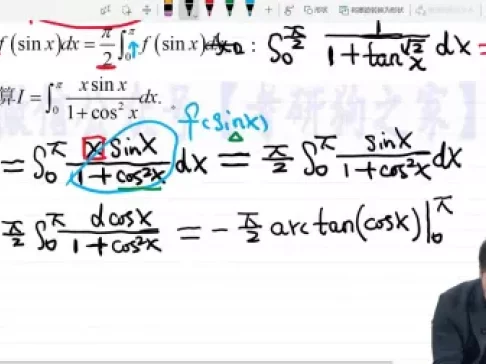 f(sin x)dx = π/2 ∫₀^π f(sin x)dx
: ∫₀^(π/2) 1/(1+tan^√2 x) dx =
算 I = ∫₀^π (x sin x)/(1+cos² x) dx.
f(sinx)
= ∫₀^π (x sinx)/(1+cos²x) dx = π/2 ∫₀^π sinx/(1+cos²x) dx
π/2 ∫₀^π dcosx/(1+cos²x) = - π/2 arctan(cosx)|₀^π